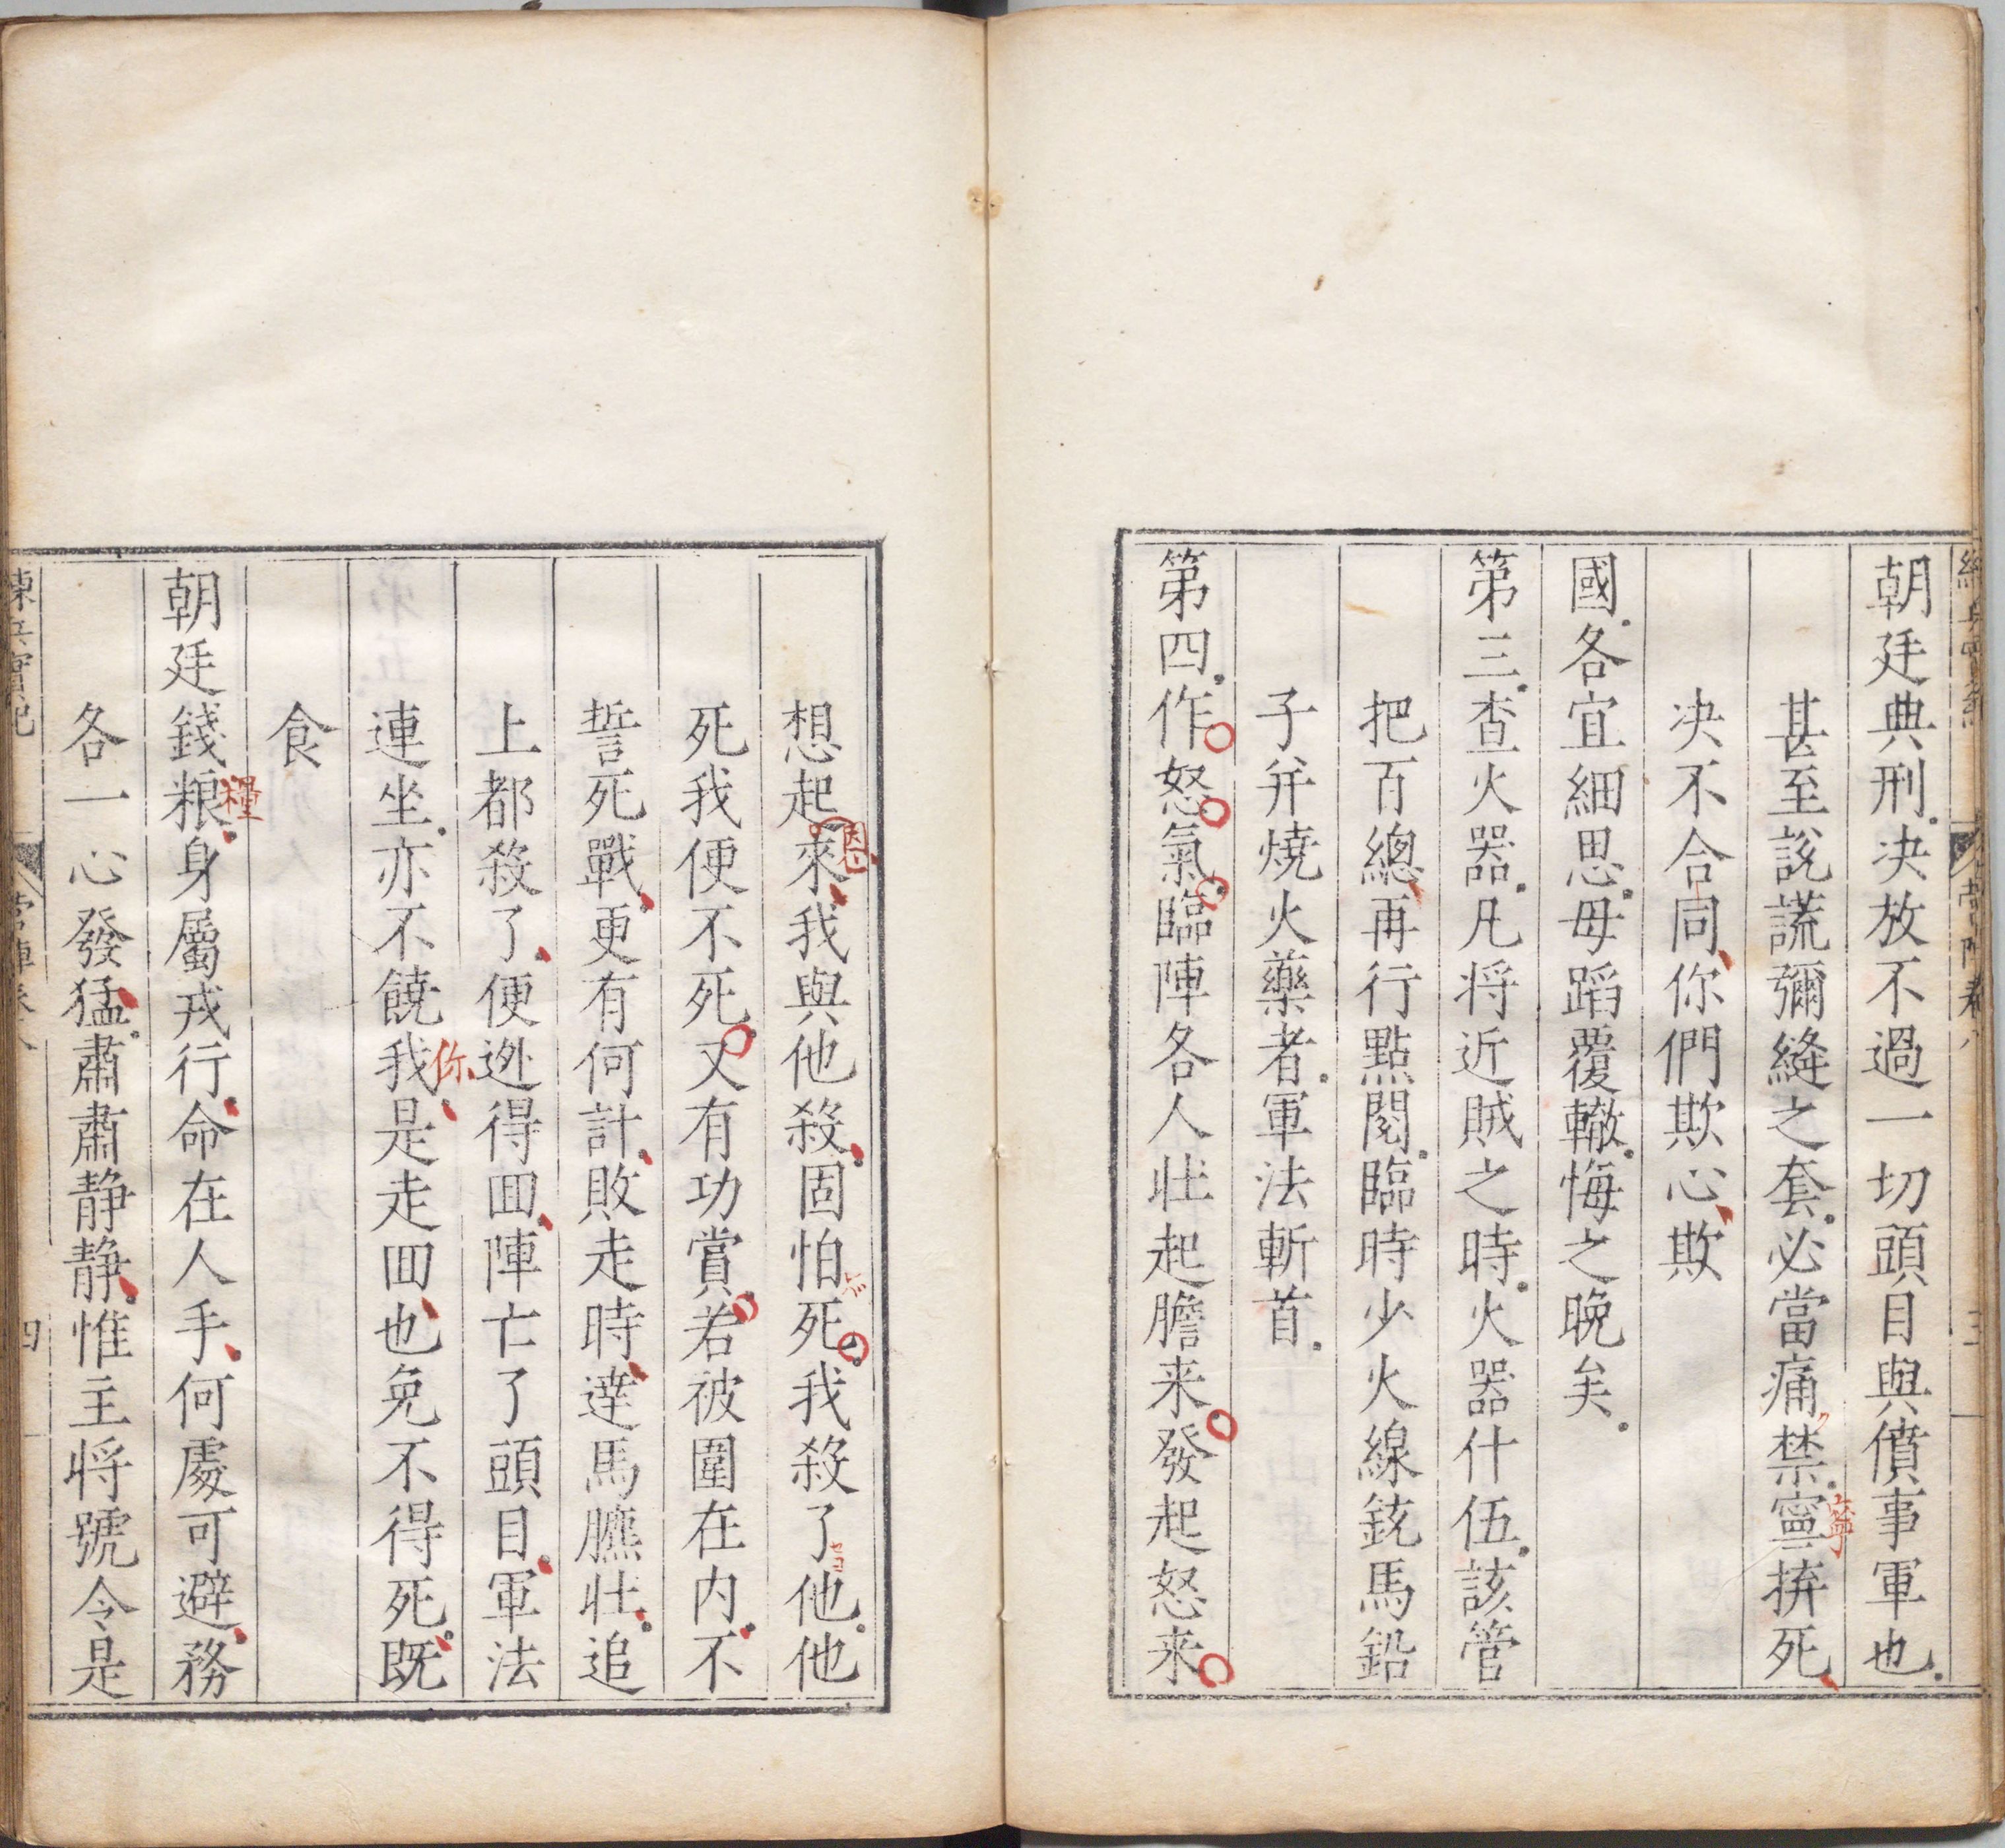 朝廷典刑決放不過一切頭目與僨事軍也
甚至說謊彌縫之套必當痛禁寧拚死
决不合同你們欺心欺
國各宜細思毋蹈覆轍悔之晚矣
第三查火器凡将近賊之時火器什伍該管
把百總再行點閱臨時少火線銃馬鉛
子并燒火藥者軍法斬首
第四作怒氣臨陣各人壯起膽来發起怒来
想起來我與他殺固怕死我殺了他他
死我便不死又有功賞若被圍在内不
誓死戰更有何計敗走時達馬臕壯追
上都殺了便迯得囬陣亡了頭目軍法
連坐亦不饒我是走囬也免不得死既
食
朝廷錢粮身屬戎行命在人手何處可避務
各一心發猛肅肅静静惟主将號令是
練兵實紀
四
寧
恩
糧
你